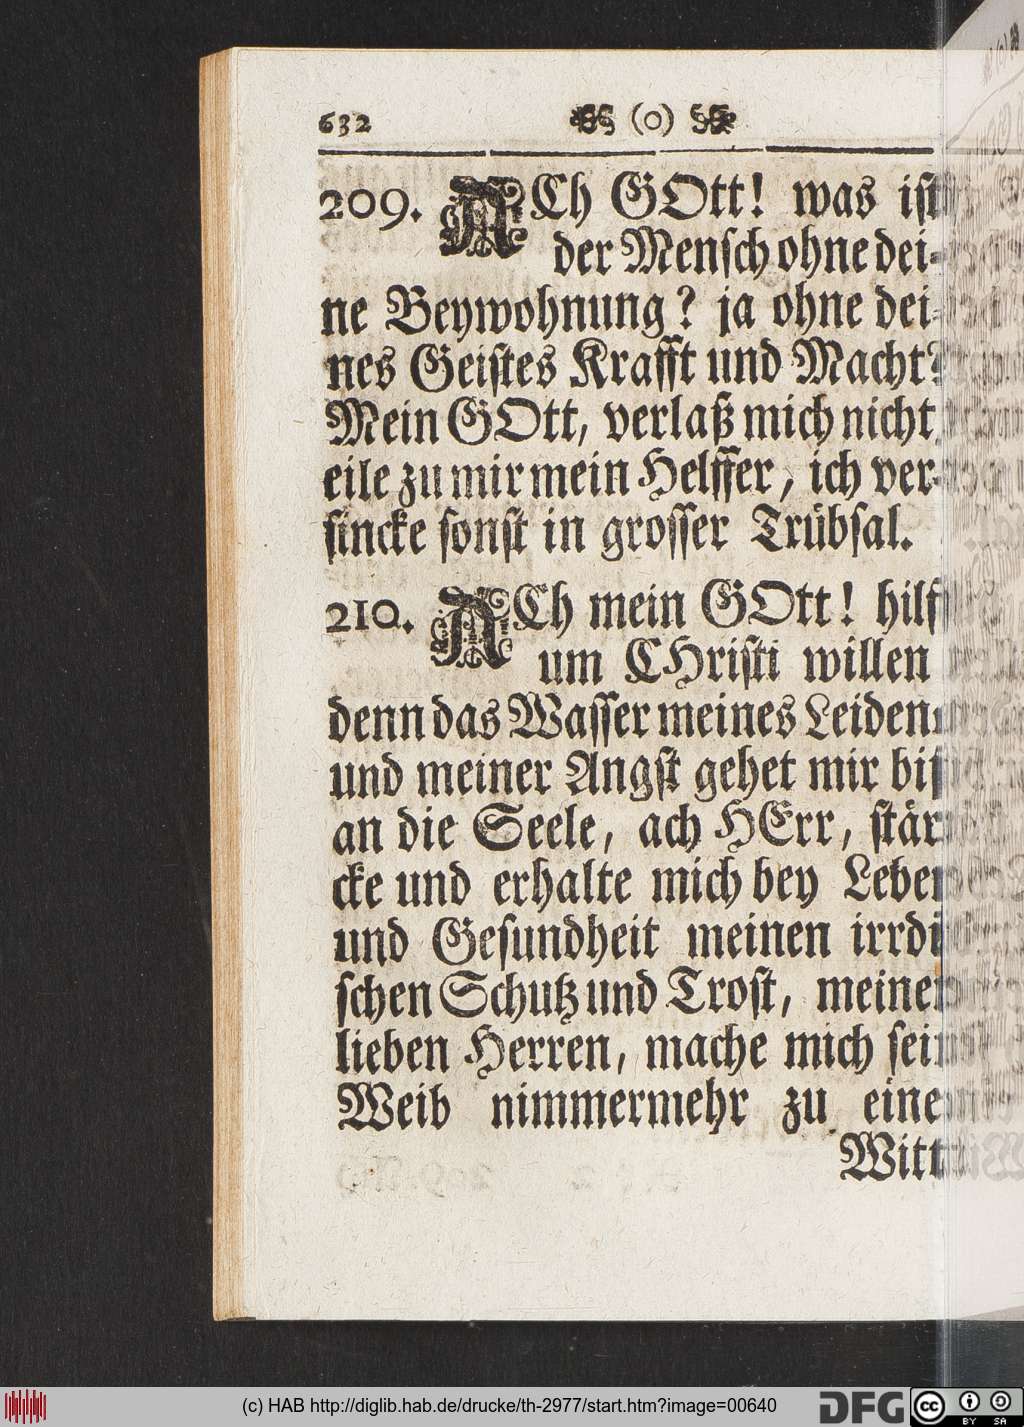 632 (o)
209. ACh GOtt! was ist
der Mensch ohne dei-
ne Beywohnung? ja ohne dei-
nes Geistes Krafft und Macht?
Mein GOtt, verlaß mich nicht
eile zu mir mein Helffer, ich ver-
sincke sonst in grosser Trübsal.
210. ACh mein GOtt! hilf
um CHristi willen
denn das Wasser meines Leiden
und meiner Angst gehet mir biß
an die Seele, ach HErr, stär
cke und erhalte mich bey Leben
und Gesundheit meinen irrdi
schen Schutz und Trost, meinen
lieben Herren, mache mich sein
Weib nimmermehr zu eine
Witt
(c) HAB http://diglib.hab.de/drucke/th-2977/start.htm?image=00640
DFG cc BY SA